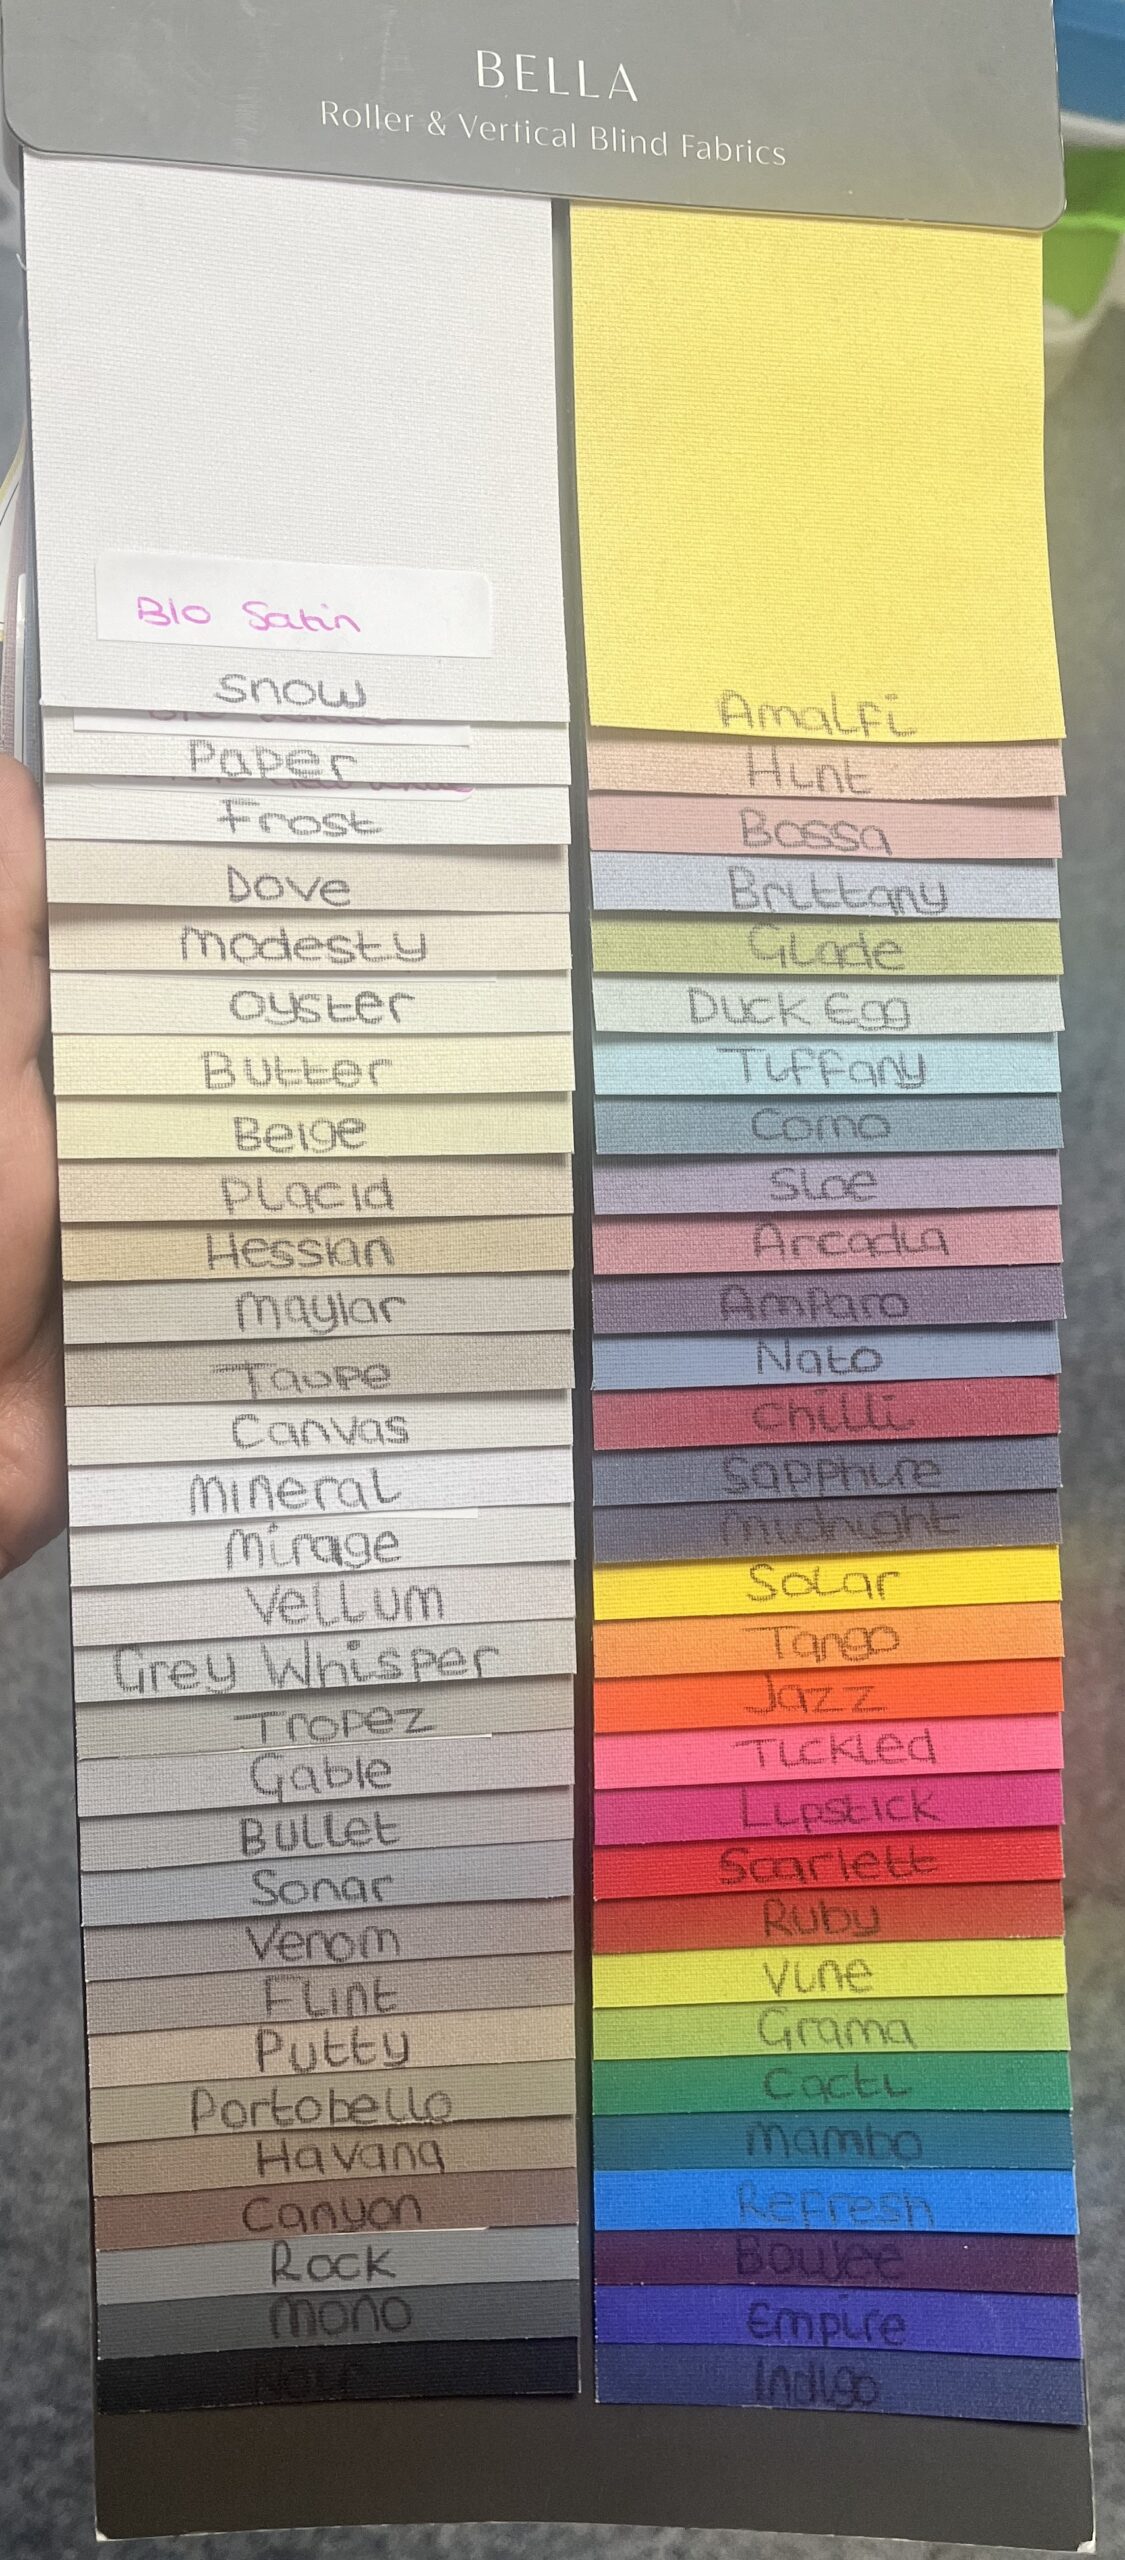 BELLA
Roller & Vertical Blind Fabrics
Blo Satin
Snow
Paper
Frost
Dove
Modesty
Oyster
Butter
Beige
Placid
Hessian
Maylar
Taupe
Canvas
Mineral
Mirage
Vellum
Grey Whisper
Tropez
Gable
Bullet
Sonar
Venom
Flint
Putty
Portobello
Havana
Canyon
Rock
Mono
Noir
Amalfi
Hint
Bossa
Brittany
Glade
Duck Egg
Tiffany
Como
Sloe
Arcadia
Amparo
Nato
Chilli
Sapphire
Midnight
Solar
Tango
Jazz
Tickled
Lipstick
Scarlett
Ruby
Vine
Grama
Cacti
Mambo
Refresh
Boujee
Empire
Indigo